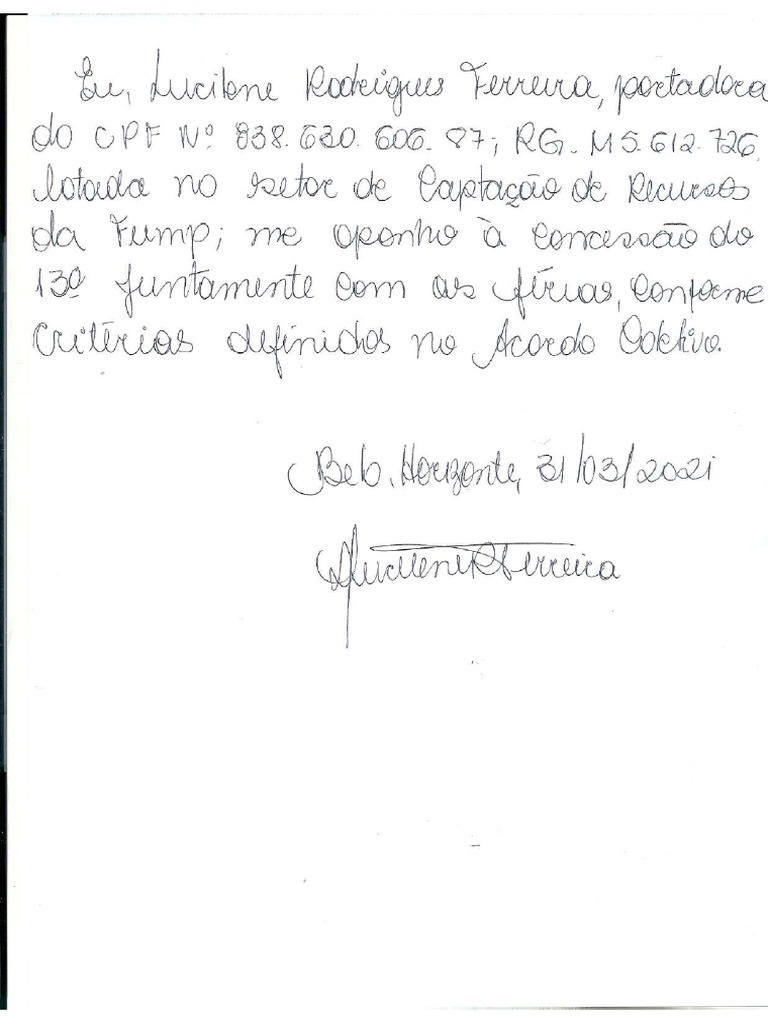 Eu, Lucilene Rodrigues Ferreira, portadora
do CPF Nº 838.630.606.87; RG. M5.612.726
lotada no setor de Captação de Recursos
da Fump; me oponho à concessão do
13º juntamente com as férias, conforme
critérios definidos no Acordo Coletivo.
Belo Horizonte, 31/03/2021
Lucilene R Ferreira